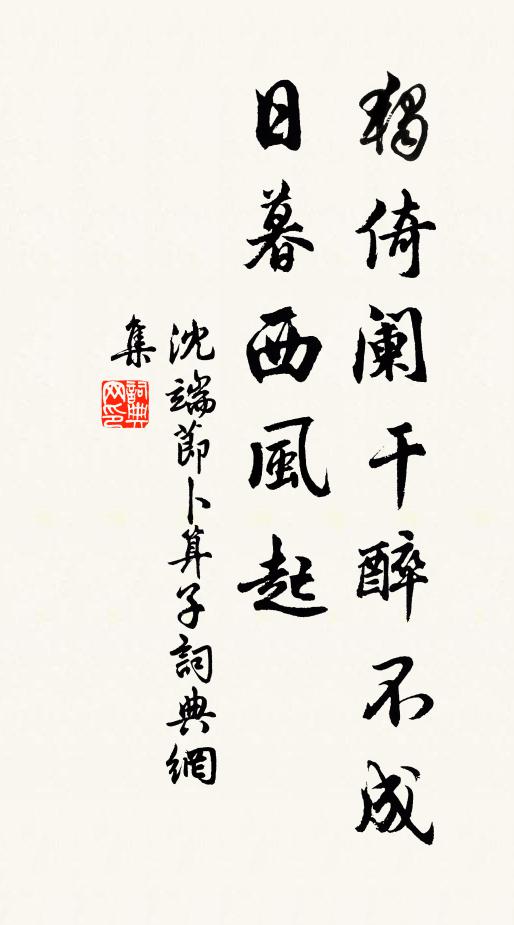 獨倚闌干醉不成
日暮西風起
沈端節卜算子詞典網
集
詞典網印